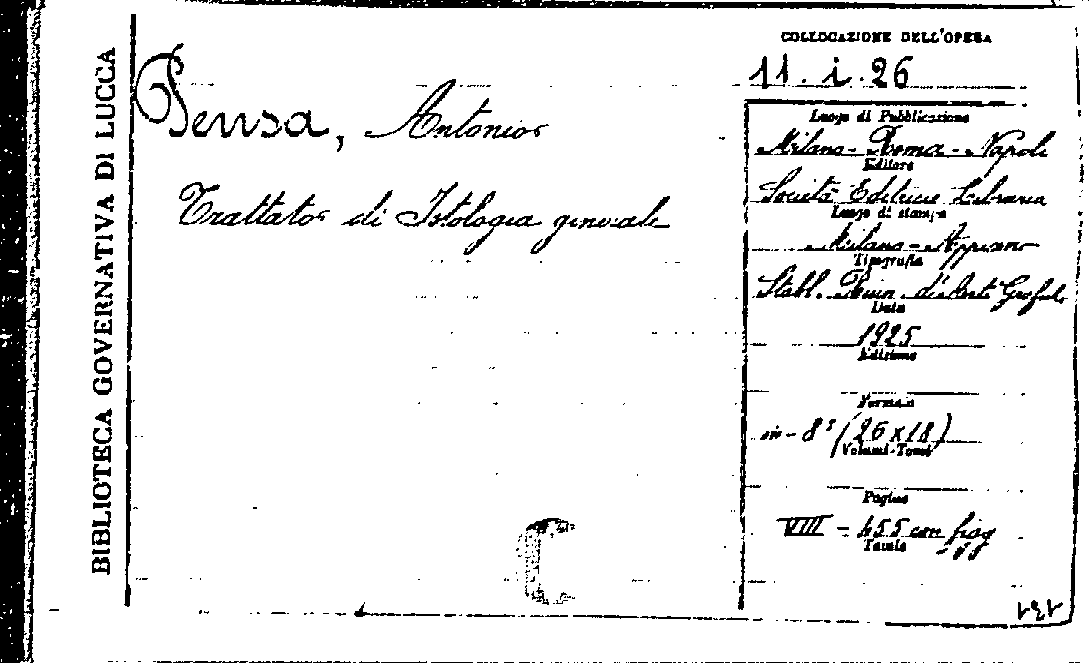 BIBLIOTECA GOVERNATIVA DI LUCCA
Pensa, Antonio
Trattato di Istologia generale
COLLOCAZIONE DELL'OPERA
11. i. 26
Luogo di Pubblicazione
Milano - Roma - Napoli
Editore
Società Editrice Libraria
Luogo di stampa
Milano - Appiano
Tipografia
Stabl. Riun. d'Arti Grafiche
Data
1925
Edizione
Formato
in - 8° (26 x 18)
Volumi-Tomi
Pagine
VIII - 455 con figg
Tavole
C